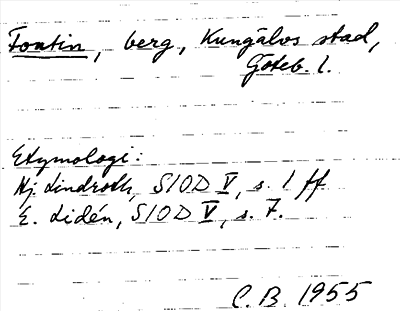 Fontin, berg, Kungälvs stad,
Göteb. l.
Etymologi:
Hj. Lindroth, SIOD V, s. 1 ff
E. Lidén, SIOD V, s. 7.
C.B. 1955